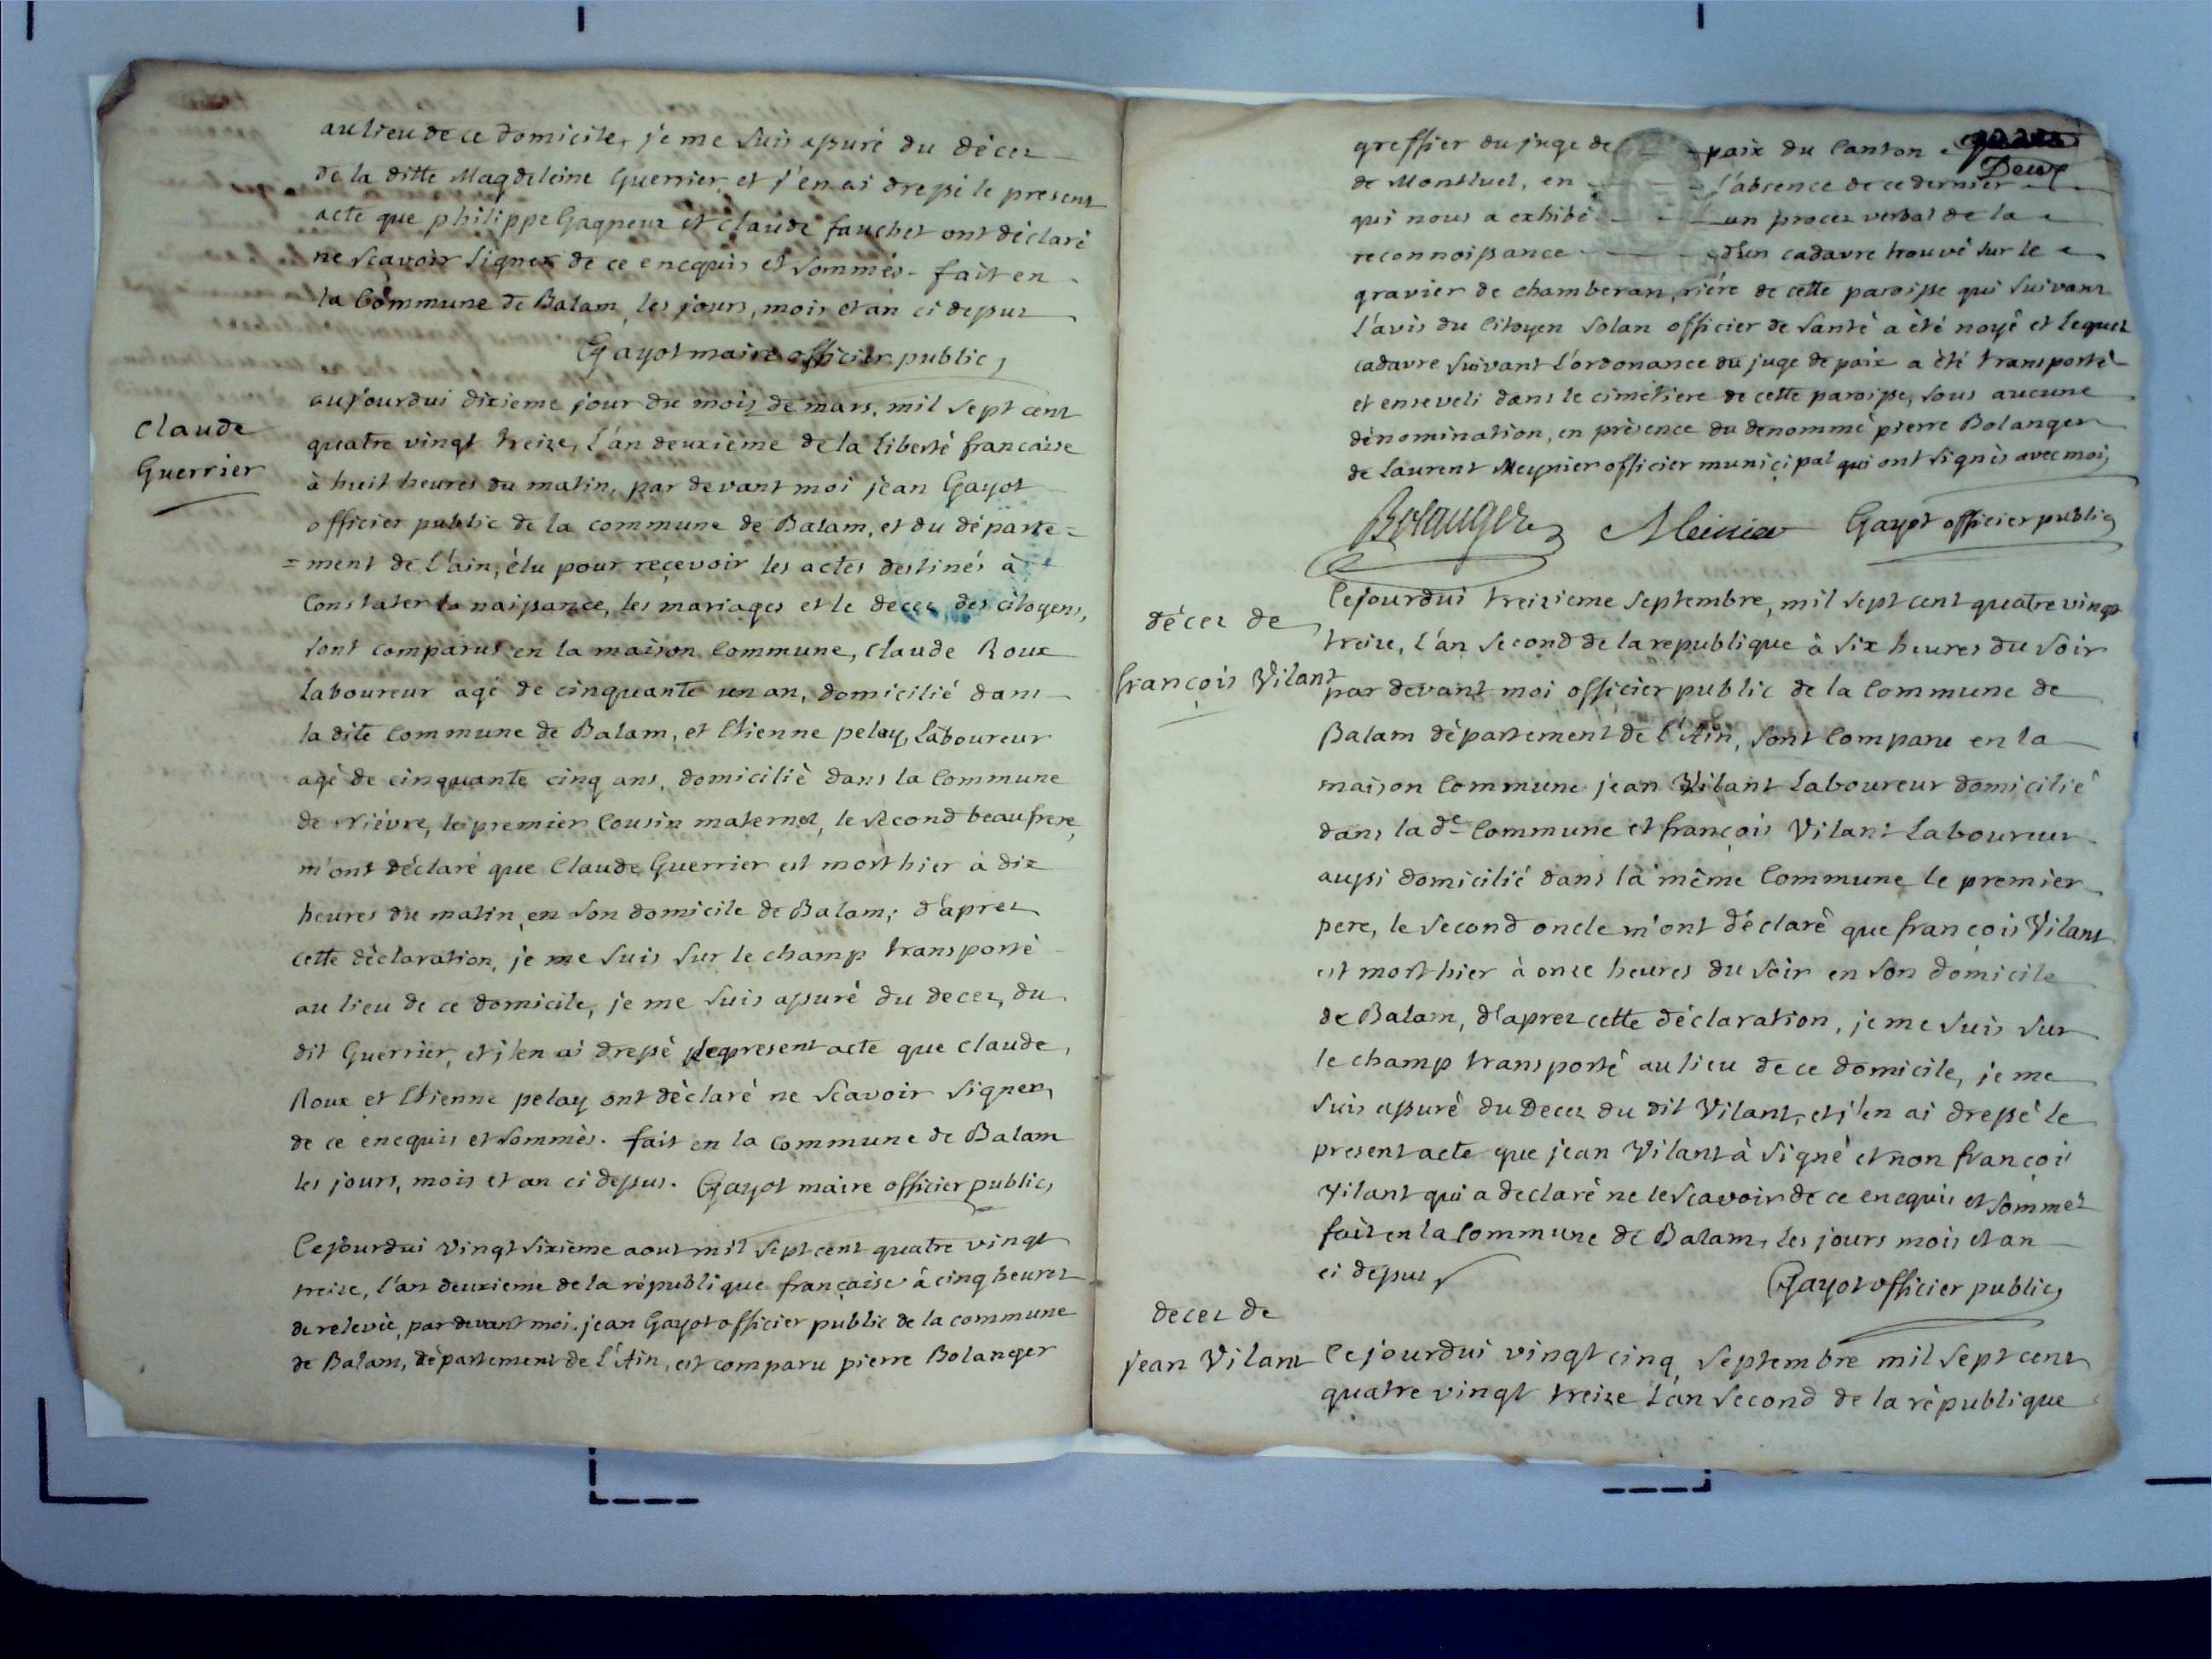 au lieu de ce domicile, je me suis assuré du décez
de la ditte Magdeleine Guerrier et j'en ai dressé le present
acte que philippe Gagneux et claude fauchet ont déclaré
ne scavoir signer de ce encquis et sommés. fait en
la Commune de Balam, les jours, mois et an ci dessus
Gayot maire officier public
claude
Guerrier
aujourdui dixieme jour du mois de mars, mil sept cent
quatre vingt treize, l'an deuxième de la liberté francaise
à huit heures du matin, par devant moi jean Gayot
officier public de la commune de Balam, et du départe=
=ment de l'ain, élu pour reçevoir les actes destinés à
Constater la naissance, les mariages et le decez des citoyens,
sont comparus en la maison Commune, claude Roux
laboureur agé de cinquante un an, domicilié dans
la dite Commune de Balam, et Etienne pelay, Laboureur
agé de cinquante cinq ans, domicilié dans la Commune
de nièvre, le premier Cousin maternel, le second beaufrere,
m'ont déclaré que Claude Guerrier est mort hier à dix
heures du matin, en son domicile de Balam; d'aprez
cette déclaration, je me suis sur le champ transporté
au lieu de ce domicile, je me suis assuré du decez, du
dit Guerrier, et j'en ai dressé le present acte que claude,
Roux et Etienne pelay ont déclaré ne scavoir signer,
de ce encquis et sommés. fait en la Commune de Balam
les jours, mois et an ci dessus. Gayot maire officier public
Cejourdui vingt sixieme aout mil sept cent quatre vingt
treize, l'an deuxieme de la république française à cinq heures
de relevée, par devant moi jean Gayot officier public de la commune
de Balam, département de l'Ain, est comparu pierre Bolanger
Deux
greffier du juge de paix du Canton
de Montluel, en l'absence de ce dernier
qui nous a exhibé un procez verbal de la
reconnoissance d'un cadavre trouvé sur le
gravier de chamberan, rière de cette paroisse qui suivant
l'avis du Citoyen Solan officier de santé a été noyé et lequel
cadavre suivant l'ordonance du juge de paix a été transporté
et enseveli dans le cimétiere de cette paroisse, sous aucune
dénomination, en présence du denommé pierre Bolanger
de Laurent Meynier officier municipal qui ont signés avec moi,
Bolanger Meinier Gayot officier public
décez de
françois Vilant
Cejourdui treizieme septembre, mil sept cent quatre vingt
treize, l'an second de la republique à six heures du soir
par devant moi officier public de la Commune de
Balam département de l'Ain, sont Comparu en la
maison Commune jean Vilant Laboureur domicilié
dans la de Commune et françois Vilant Laboureur
aussi domicilié dans la même Commune le premier
pere, le second oncle m'ont déclaré que françois Vilant
est mort hier à onze heures du soir en son domicile
de Balam, d'aprez cette déclaration, je me suis sur
le champ transporté au lieu de ce domicile, je me
suis assuré du Decez du dit Vilant, et j'en ai dressé le
present acte que jean Vilant à signé et non françoi
vilant qui a declaré ne le scavoir de ce encquis et sommé
fait en la Commune de Balam, les jours mois et an
ci dessus Gayot officier public
decez de
jean Vilant
Cejourdui vingt cinq septembre mil sept cent
quatre vingt treize l'an second de la république